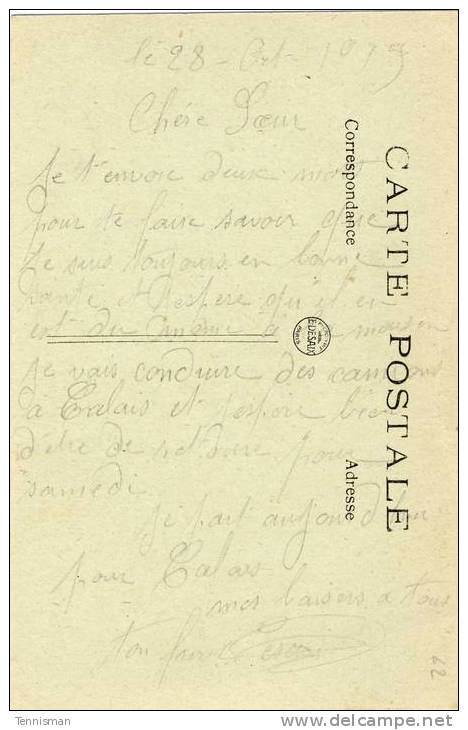 le 28 - Oct - 19
Chére Sœur
Je t'envoie deux mot
pour te faire savoir que
Je suis toujours en bonne
santé et j'espere qu'il en
est du meme à la maison
Je vais conduire des camions
a Calais et j'espère bien
d'etre de retour pour
samedi
je part aujourd'hui
pour Calais
mes baisers a tous
ton frère
CARTE POSTALE
Correspondance
Adresse
62
Tennisman
delcampe.net